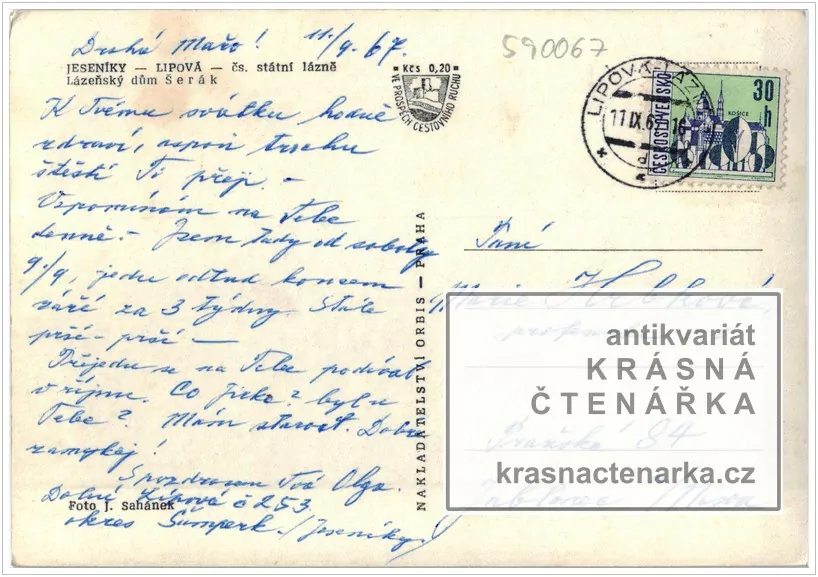 Drahá Mařo! 11/9. 67.
590067
JESENÍKY — LIPOVÁ — čs. státní lázně
Lázeňský dům Šerák
Kčs 0,20
VE PROSPĚCH CESTOVNÍHO RUCHU
LIPOVÁ-LÁZNĚ
11.IX.67
ČESKOSLOVENSKO
KOŠICE
30 h
K Tvému svátku hodně
zdraví, aspoň trochu
štěstí Ti přeji. -
Vzpomínám na Tebe
denně. - Jsem tady od soboty
9/9, jedu odtud koncem
září za 3 týdny. Stále
prší - prší -
Přijedu se na Tebe podívat
v říjnu. Co Jirka? byl u
Tebe? Mám starost. Dobře
zamykej!
S pozdravem Tvá Olga.
Dolní Lipová č 253
Foto J. Sahánek
okres Šumperk. /Jeseníky/
NAKLADATELSTVÍ ORBIS — PRAHA
Paní
Marie
antikvariát
KRÁSNÁ
ČTENÁŘKA
84
krasnactenarka.cz